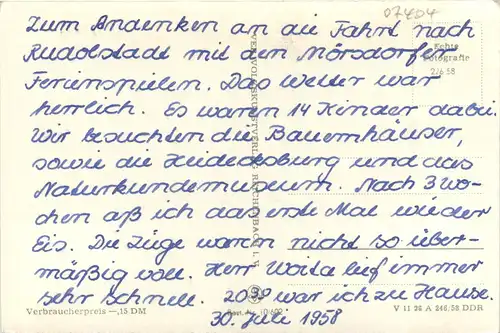 07404
Zum Andenken an die Fahrt nach
Rudolstadt mit den Mörsdorfer
Echte
Fotografie
2/6 58
Ferienspielen. Das Wetter war
herrlich. Es waren 14 Kinder dabei.
Wir besuchten die Bauernhäuser,
sowie die Heidecksburg und das
Naturkundemuseum. Nach 3 Wo-
chen aß ich das erste Mal wieder
Eis. Die Züge waren nicht so über-
mäßig voll. Herr Woita lief immer
sehr schnell. 20⁰⁰ war ich zu Hause.
30. Juli 1958
VEB VOLKSKUNSTVERLAG REICHENBACH I. V.
Verbraucherpreis —,15 DM
Best.-Nr.
V 11 28 A 246/58 DDR